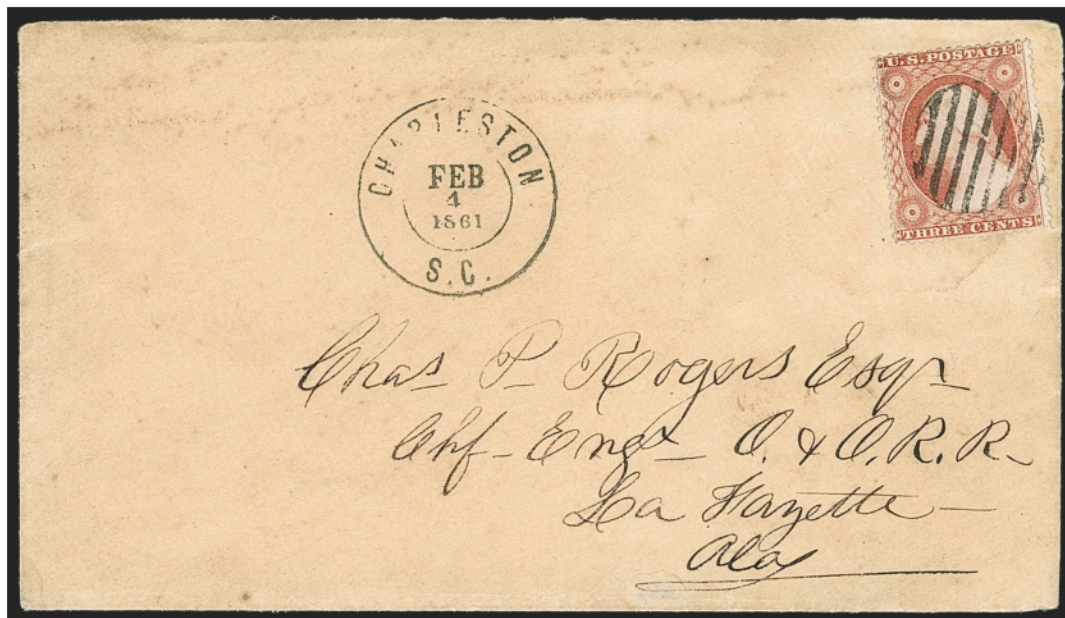 U.S. POSTAGE
THREE CENTS
CHARLESTON
FEB
4
1861
S.C.
Chas P Rogers Esqr
Chf Engr O. & O.R.R.
La Fayette
Ala